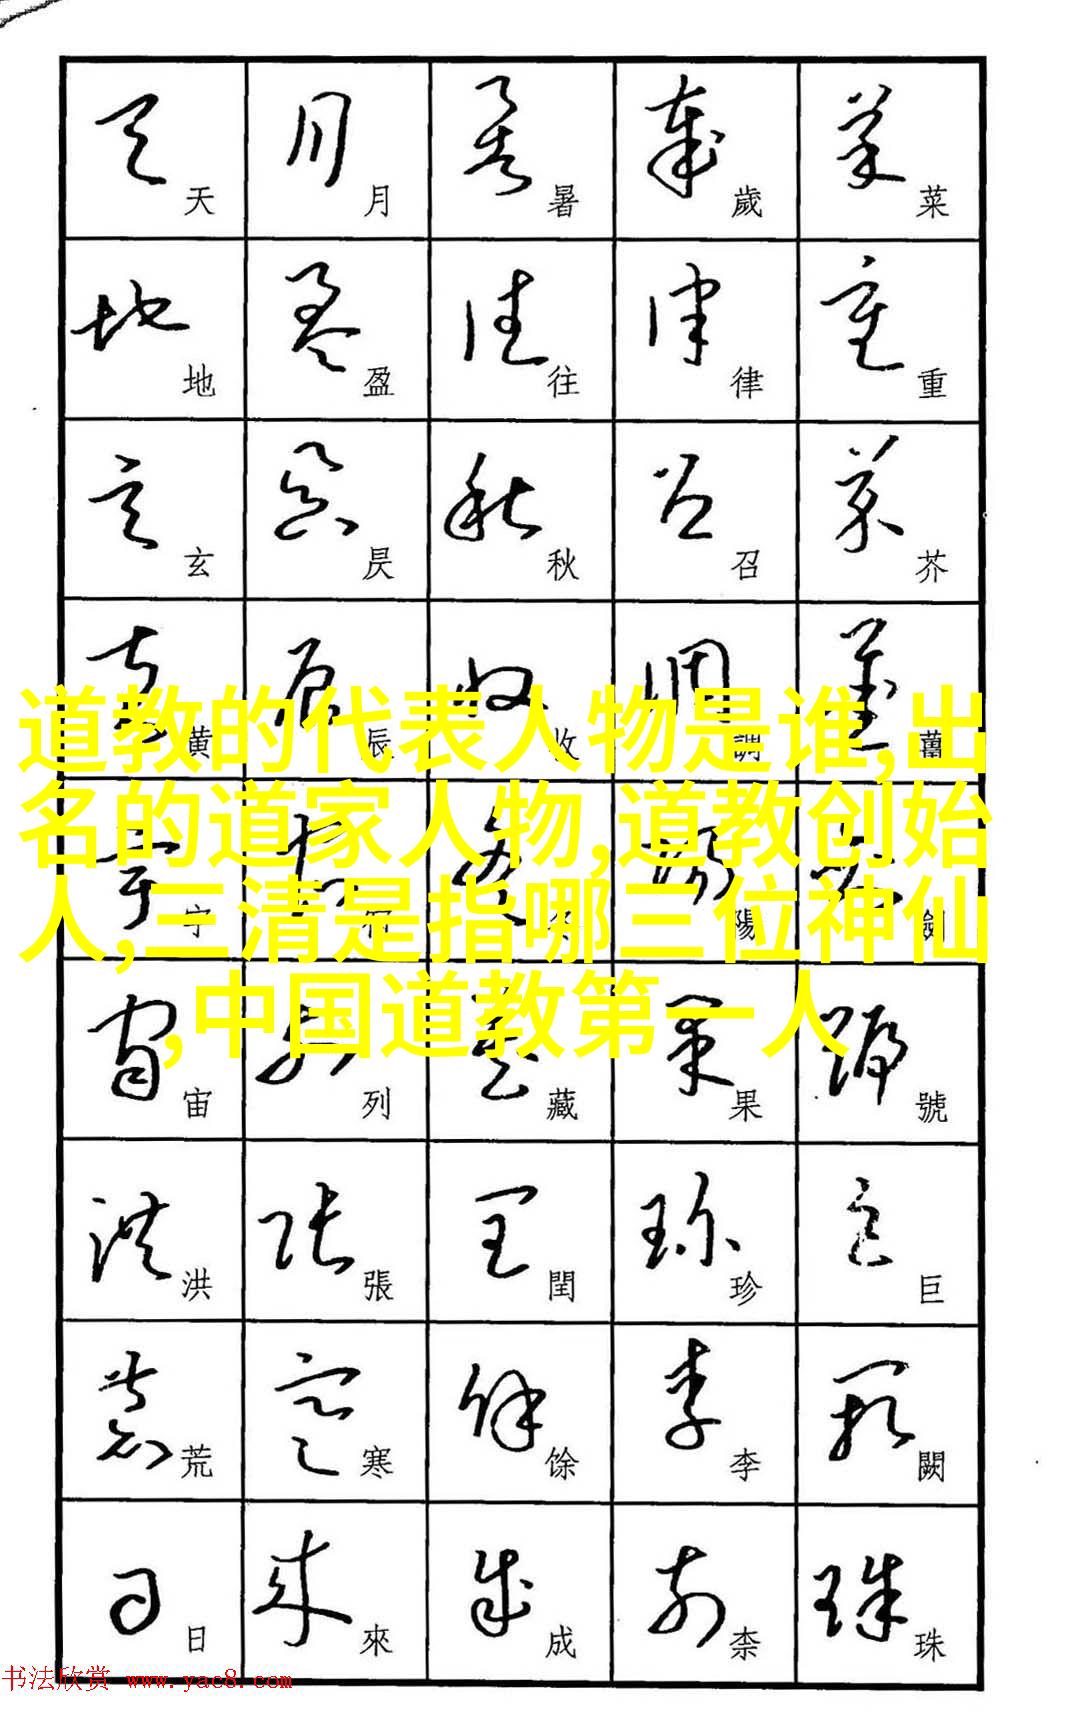 天 月 暑 歲 菜
地 盈 往 律 重
玄 昃 秋 召 芥
黄 辰 收 調 薑
道教的代表人物是谁,出
名的道家人物,道教创始
人,三清是指哪三位神仙
,中国道教第一人
陽
宙 列 藏 果 號
洪 張 閏 珍 巨
荒 寒 馀 李 闕
日 來 成 柰 珠
书法欣赏 www.yac8.com